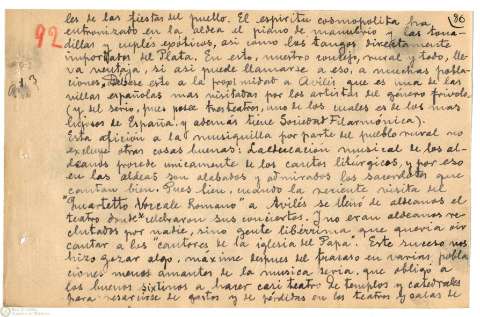 les de las fiestas del pueblo. El espíritu cosmopolita ha
86
92
entronizado en la aldea el piano de manubrio y las tona-
dillas y cuplés exóticos, así como los tangos directamente
importados del Plata. En esto, nuestro concejo, rural y todo, lle-
va ventaja, si así puede llamarse a eso, a muchas pobla-
ciones. Débese esto a la proximidad a Avilés que es una de las
villas españolas mas visitadas por los artistas del género frívolo
(y del serio, pues posee tres teatros, uno de los cuales es de los mas
lujosos de España, y además tiene Sociedad Filarmónica).
Esta afición a la musiquilla por parte del pueblo rural no
excluye otras cosas buenas: La educación musical de los al-
deanos procede unicamente de los cantos litúrgicos, y por eso
en las aldeas son alabados y admirados los sacerdotes que
cantan bien. Pues bien, cuando la reciente visita del
"Quartetto Vocale Romano" a Avilés se llenó de aldeanos el
teatro donde celebraron sus conciertos. Y no eran aldeanos re-
clutados por nadie, sino gente libérrima que quería oir
cantar a los "cantores de la iglesia del Papa". Este suceso nos
hizo gozar algo, máxime despues del fracaso en varias pobla-
ciones menos amantes de la musica seria, que obligó a
los buenos sixtinos a hacer casi teatro de templos y catedrales
para resarcirse de gastos y de pérdidas en los teatros y salas de